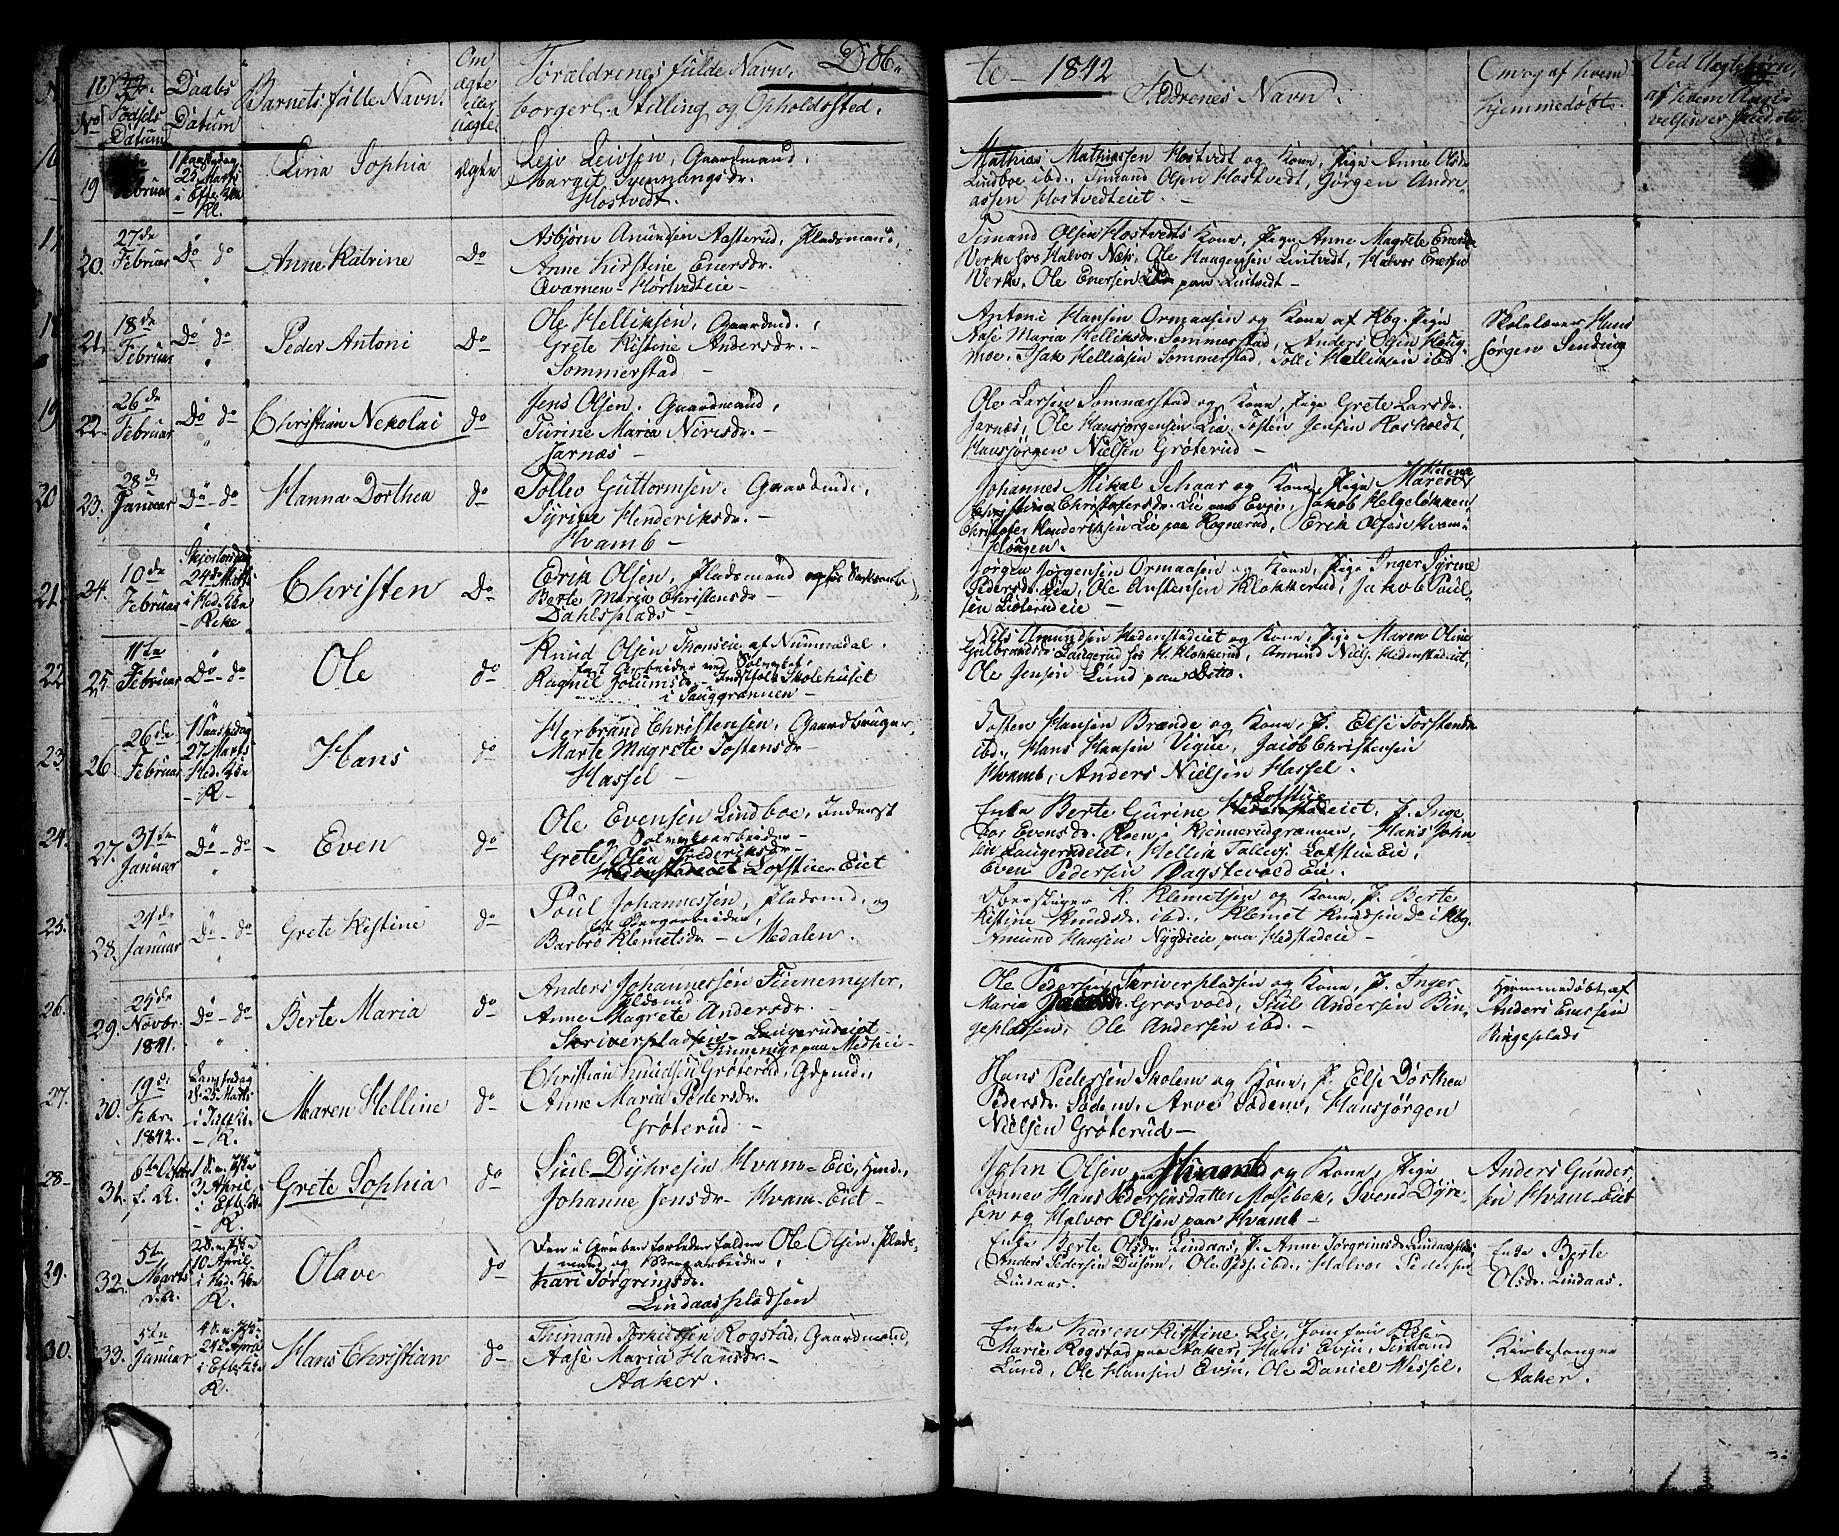 Døb- te 1842
No
Fødsels Datum
Daabs Datum
Barnets fulde Navn.
Om ægte eller uægte
Forældrenes fulde Navn,
borgerl. Stilling og Opholdssted.
Faddrenes Navn.
Om og af hvem
hjemmedøbt.
19
Februar
25 Marts
Lina Sophia
ægte
Leiv Leivsen, Gaardmand,
Margit Svennungsdr.
Hostvedt.
Mathias Mathiassen Hostvedt og Kone, Pige Anne Olsdr.
Lindboe ibd., Simand Olsen Hostvedt, Jørgen Andre-
assen Hostvedteiet. -
20.
27de
Februar
Do do
Anne Katrine
Do
Asbjørn Anundsen Aasterud, Pladsmand,
Anne Kirstine Enersdr.
Qværnen - Hostvedteie -
Simand Olsen Hostvedts Kone, Pige Anne Magrete Eners
Verk hos Halvor Næs, Ole Haagensen Lintvedt, Halvor Enersen
Verk, Ole Enersen paa Lintvedt -
21.
18de
Februar
Do do
Peder Antoni
Do
Ole Helliksen, Gaardmd.,
Grete Kistine Andersdr. -
Sommerstad -
Antoni Hansen Ormaasen og Kone af Kbg. Pige
Aase Maria Helliksdr. Sommerstad, Anders Olsen Helig-
moe, Isak Helliksen Sommerstad, Tolli Helliksen ibd.
Skolelærer Hans
Jørgen Sending
19
22.
26de
Februar
Do do
Christian Nekolai
do
Jens Olsen, Gaardmand,
Turine Maria Nirisdr. -
Jarnæs -
Ole Larsen Somnerstad og Kone, Pige Grete Larsdr.
Jarnæs, Ole Hansjørgensen Lia, Tosten Jensen Roskvedt,
Hansjørgen Nielsen Grøterud -
20
23.
28de
Januar
Do - do
Hanna Dorthea
do
Tollev Guttormsen. Gaardmd.,
Tyrine Henderiksdr. -
Hvamb -
Johannes Mikal Schaar og Kone, Pige Maren Helena
Christine Christofersdr. Lie paa Evju, Jakob Helgeløkken
Christofer Henderiksen Lie paa Rognerud, Erik Olsen Hvam-
Hougen.
21.
24.
10de
Februar
Skjertorsdag
24de Marts
i Hed. Kðn
- Reke
Christen
Do
Erik Olsen, Pladsmand
Berte Maria Christensdr -
Dahlsplads -
Jørgen Jørgensen Ormaasen og Kone, Pige Inger Tyrine
Pedersdr. Lia, Ole Anstensen Klokkerud, Jakob Paul-
sen Listerudeie -
22
25.
11te
Februar
Do - do
Ole
do
Knud Olsen Tronsen af Nummedal.
fast Arbeider ved Sølvverket,
Ragnil Goumsdr - Indst. fols Skolehuset
i Sauggrænnen -
Nils Amundsen Hedenstadeiet og Kone, Pige Maren Oline
Gulbrandsdr Laugerud hos H. Klokkerud, Amund Niels. Hedenstadeiet,
Ole Jensen Lund paa Ditto.
23.
26.
26de
Februar
1 Paaskedag
27 Marts
Hed. Kðn
- K -
Hans
do
Herbrand Christensen, Gaardbruger,
Marte Magrete Tostensdr -
Hassel -
Tosten Hansen Brænde og Kone, P. Else Torstensdr
ibd., Hans Hansen Vigue, Jacob Christensen
Hvamb, Anders Nielsen Hassel.
24.
27.
31te
Januar
Do - do
Even
do
Ole Evensen Lindboe, Inderst
og Sølvverksarbeider -
Grete Olea Frederiksdr -
Hedenstadeiet Lofstuer Eiet
Enke Berte Gurine Hedenstadeiet Lofstue, P. Inge-
bor Evensdr. Roen i Kjennerudgrænnen, Hans John-
sen Laugerudeiet, Hellik Tollefs. Lofstu Eie,
Even Pedersen Bagstevold Eie.
25.
28.
24de
Januar
Do - do
Grete Kistine
do
Poul Johannessen, Pladsmd. og
fast Bergarbeider,
Barbro Klemetsdr. - Medalen.
Oberstiger K. Klemetsen og Kone, P. Berte
Kistine Knudsdr. ibd., Klemet Knudsen do i Kbg.
Amund Hansen Nygdeie paa Hedstadeie -
26.
29.
29de
Novbr.
1841.
Do - do
Berte Maria
do
Anders Johannessen Finnemyhr,
Pladsmd.
Anne Magrete Andersdr. -
Skriverpladsen - Laugerudeiet
Ole Pedersen Skriverpladsen og Kone, P. Inger
Maria Grosvold, Skul Andersen Bin-
gepladsen, Ole Andersen ibd. -
Hjemmedøbt af
Anders Enersen
Bingeplads
27.
30.
19de
Febr.
1842.
Langfredag
d. 25 Marts
- K.
Maren Helline
do
Christian Knudsen Grøterud, Gdmd.,
Anne Maria Pedersdr.
Grøterud -
Hans Pedersen Skolem og Kone, P. Else Dorthea
Pedersdr. Sodem, Arve Sodem, Hansjørgen
Nielsen Grøterud -
28
31.
3 April
i Efts. Kðn
- K.
Grete Sophia
do
Siul Dyhresen Hvam - Eie, Hmd.,
Johanne Jensdr - Hvam - Eiet -
John Olsen paa Hvamb og Kone, Pige
Sønnev Hans Pedersensdatter Mosebek, Svend Dyre-
sen og Halvor Olsen paa Hvamb -
Anders Gunder-
sen Hvam - Eiet
29.
32.
5te
Marts
10 April
i Hed. Kðn
K.
Olave
do
Den i Gruben forleden faldne Ole Olsen, Plads-
mand og Bergarbeider,
Kari Torgrimsdr.
Lindaaspladsen
Enke Berte Olsdr. Lindaas, P. Anne Torgrimsdr. Lindaasplads
Anders Pedersen Disem, Ole Peds. ibd., Halvor Pedersen
Lindaas.
Enke Berte
Olsdr. Lindaas.
30.
33.
5te
Januar
24 April
i Efts. Kðn
K.
Hans Christian
do
Thimand Torkildsen Rogstad, Gaardmand,
Aase Maria Hansdr -
Aaker.
Enke Karen Kistine Lie, Jomfru Else
Marie Rogstad paa Aaker, Hans Evju, Simand
Lund, Ole Hansen Evju, Ole Daniel Wessel.
Kirkesanger
Aaker.